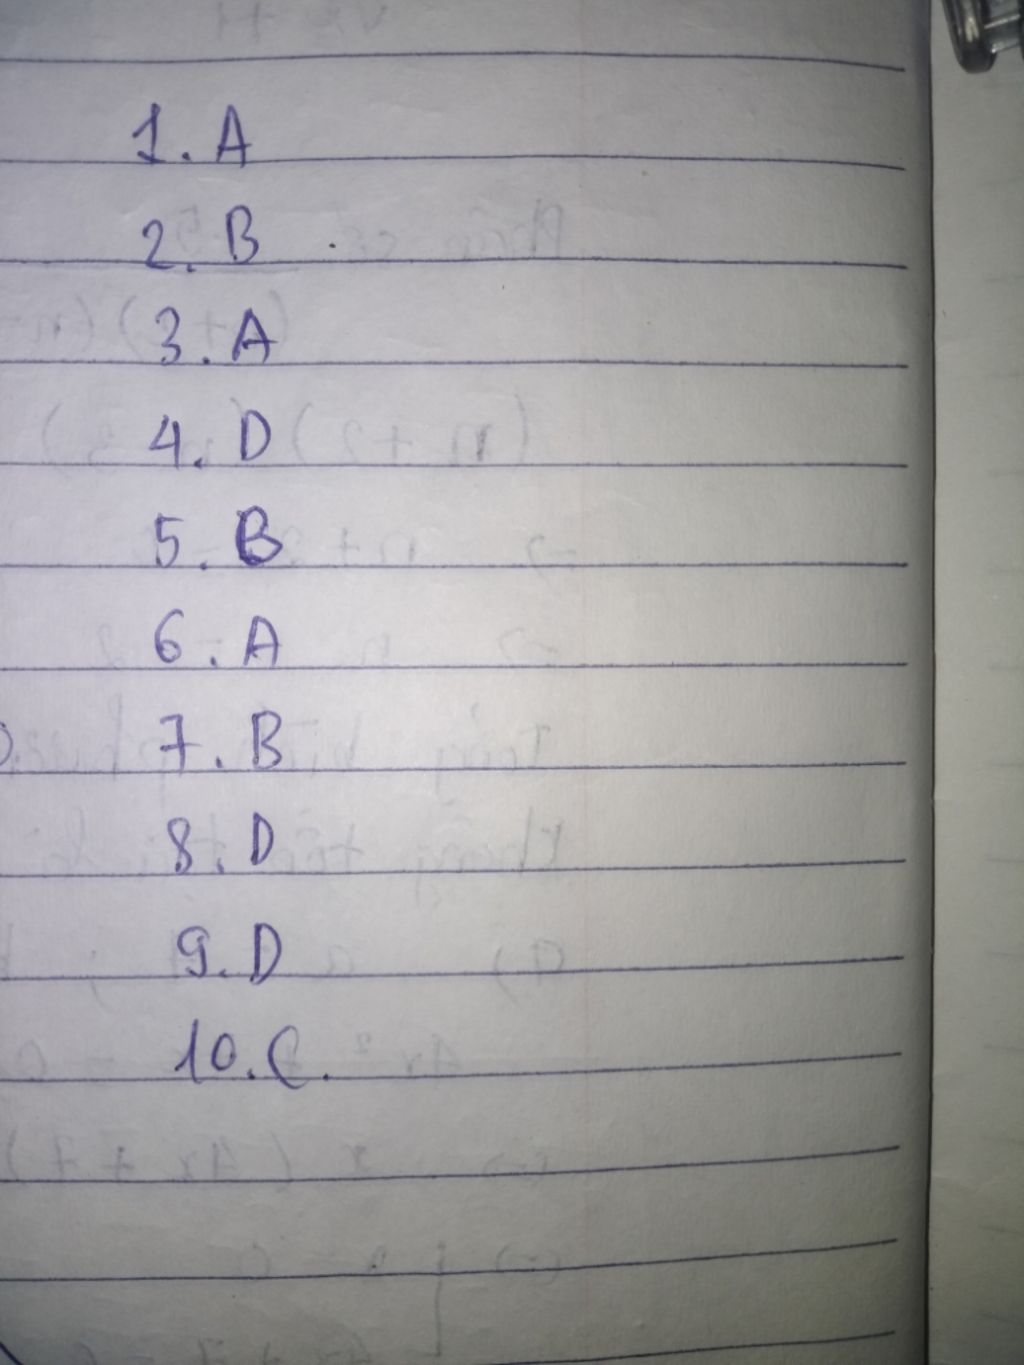 1. A
2. B
3. A
4. D
5. B
6. A
7. B
8. D
9. D
10. C.